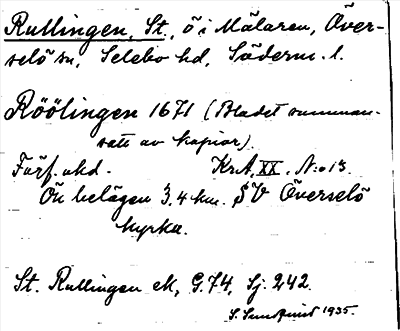 Rullingen, St., ö i Mälaren, Över-
selö sn, Selebo hd, Söderm. l.
Röölingen 1671 (Bladet summan-
satt av kopior).
Förf. okd. Kr.A. XX. N:o 13.
Ön belägen 3,4 km. SV Överselö
kyrka.
St. Rullingen ek, G.74, Sj. 242.
S. Sundquist 1935.